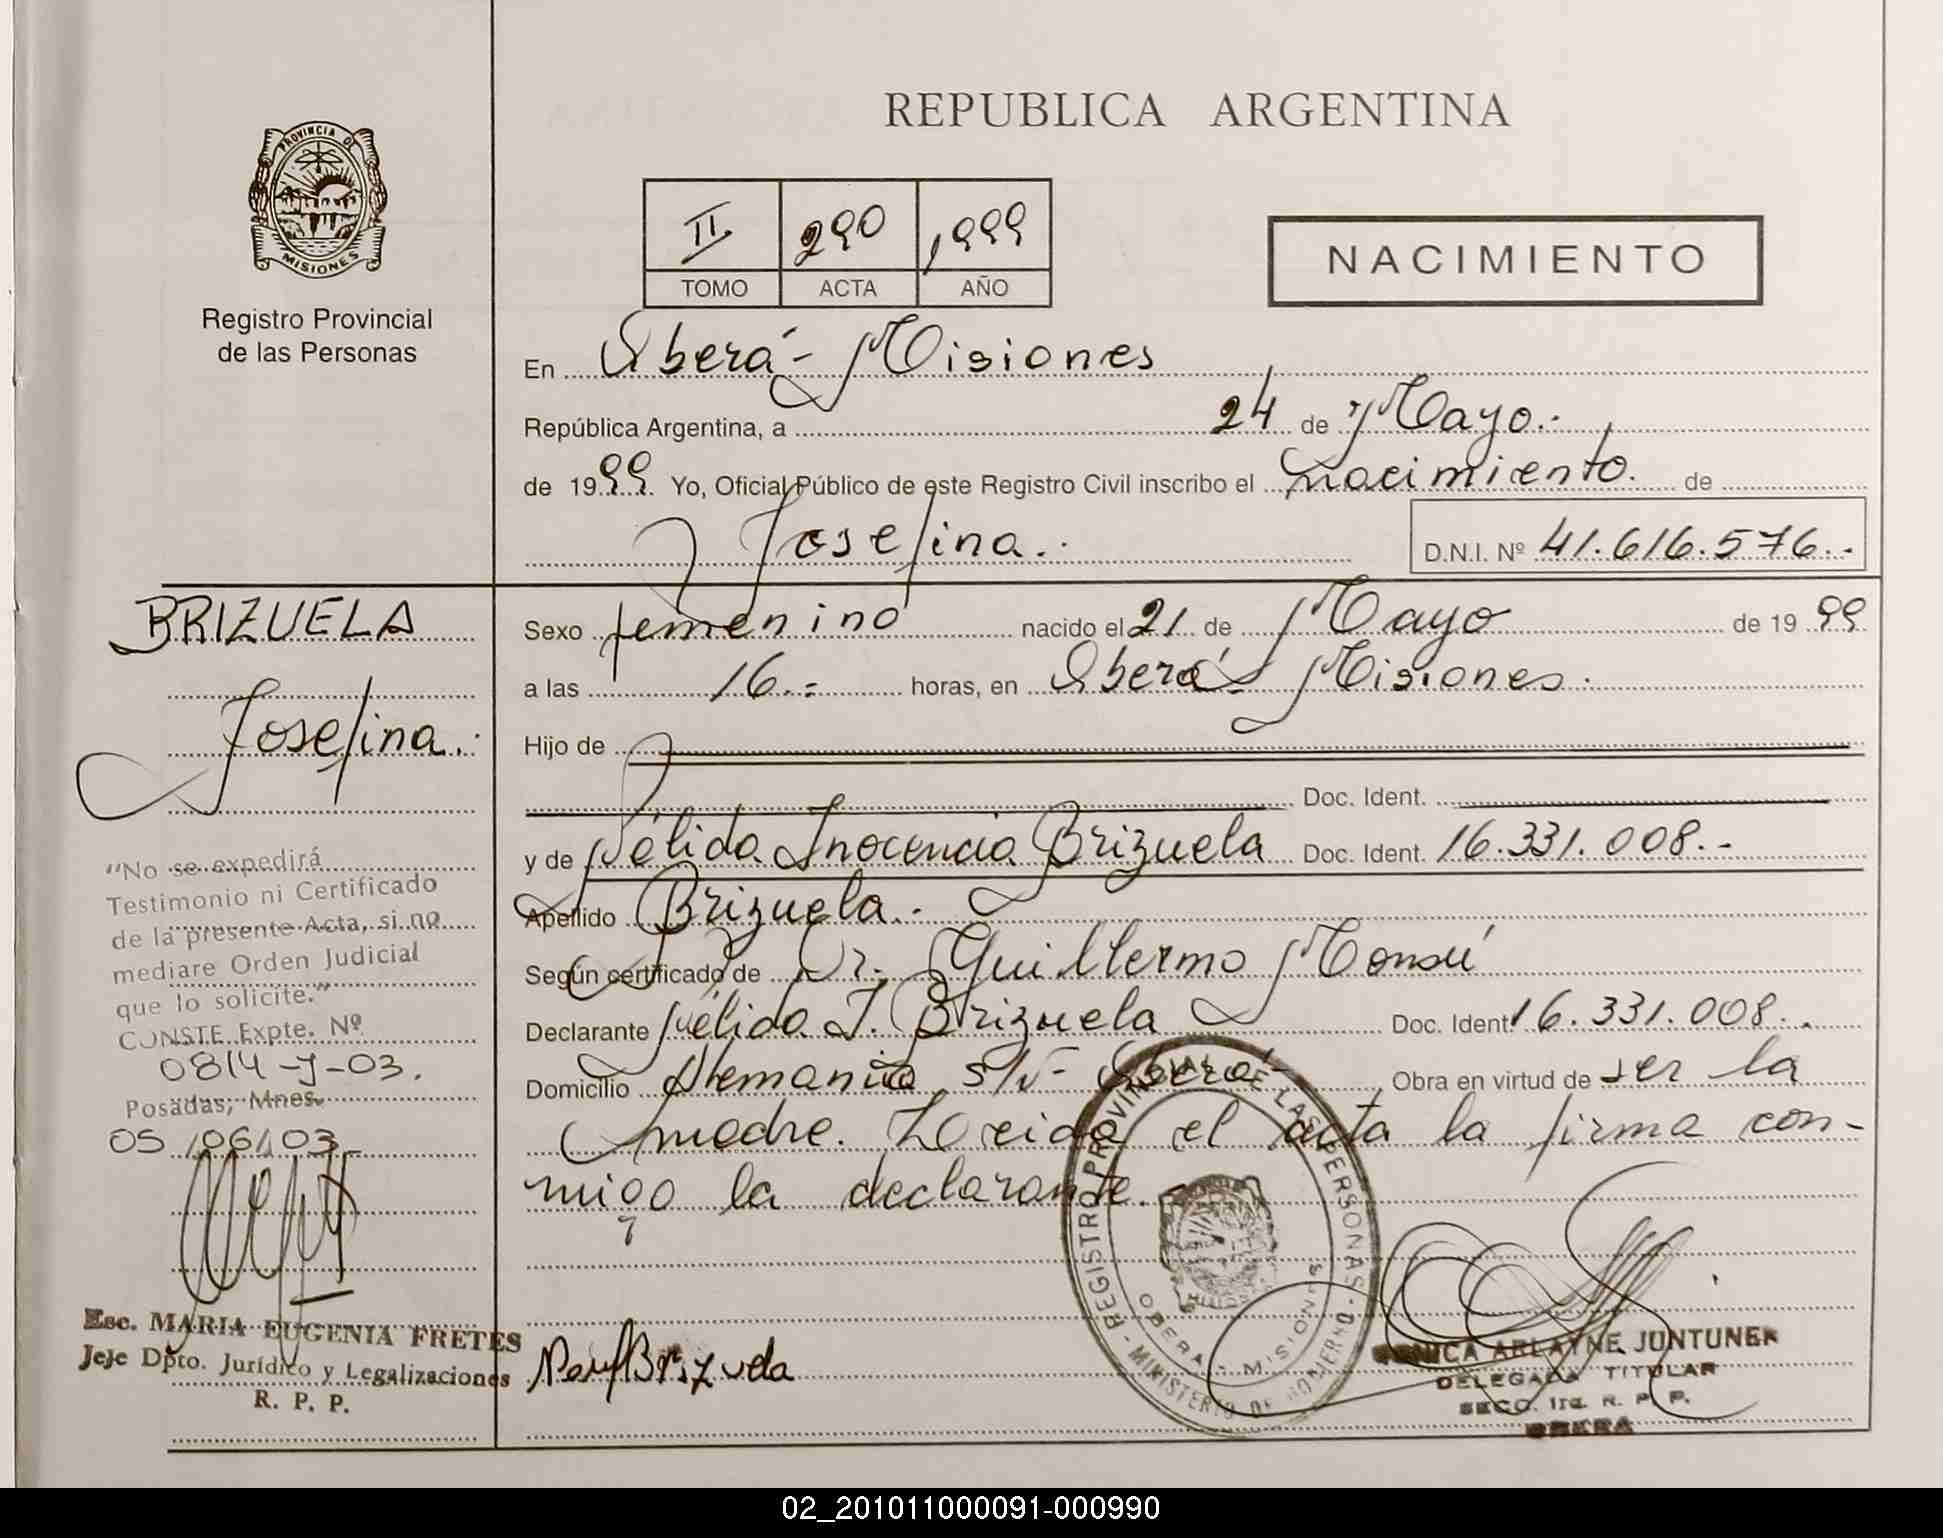 REPUBLICA ARGENTINA
PROVINCIA DE
MISIONES
Registro Provincial
de las Personas
II 290 1999
TOMO ACTA AÑO
NACIMIENTO
En Oberá - Misiones
República Argentina, a 24 de Mayo.-
de 1999. Yo, Oficial Público de este Registro Civil inscribo el nacimiento. de
Josefina.- D.N.I. Nº 41.616.576.-
BRIZUELA
Josefina.-
Sexo femenino nacido el 21 de Mayo de 1999
a las 16.- horas, en Oberá - Misiones.
Hijo de
Doc. Ident.
y de Nélida Inocencia Brizuela Doc. Ident. 16.331.008.-
Apellido Brizuela.-
Según certificado de Dr. Guillermo
Declarante Nélida I. Brizuela Doc. Ident 16.331.008.-
Domicilio Alemania S/N - Oberá - Obra en virtud de ser la
madre. Leida el acta la firma con-
migo la declarante.
"No se expedirá
Testimonio ni Certificado
de la presente Acta, si no
mediare Orden Judicial
que lo solicite."
CONSTE Expte. Nº
0814-J-03.
Posadas, Mnes.
05/06/03
Esc. MARIA EUGENIA FRETES
Jefe Dpto. Jurídico y Legalizaciones
R. P. P.
Brizuela
REGISTRO PROVINCIAL DE LAS PERSONAS - MINISTERIO DE GOBIERNO -
OBERA - MISIONES
ARLAYNE JUNTUNEN
DELEGADA TITULAR
SECC. 1ra. R. P. P.
OBERA
02_201011000091-000990